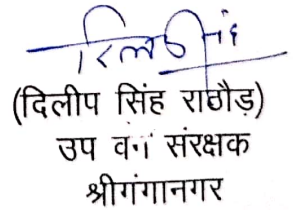 (दिलीप सिंह राठौड़)
उप वन संरक्षक
श्रीगंगानगर